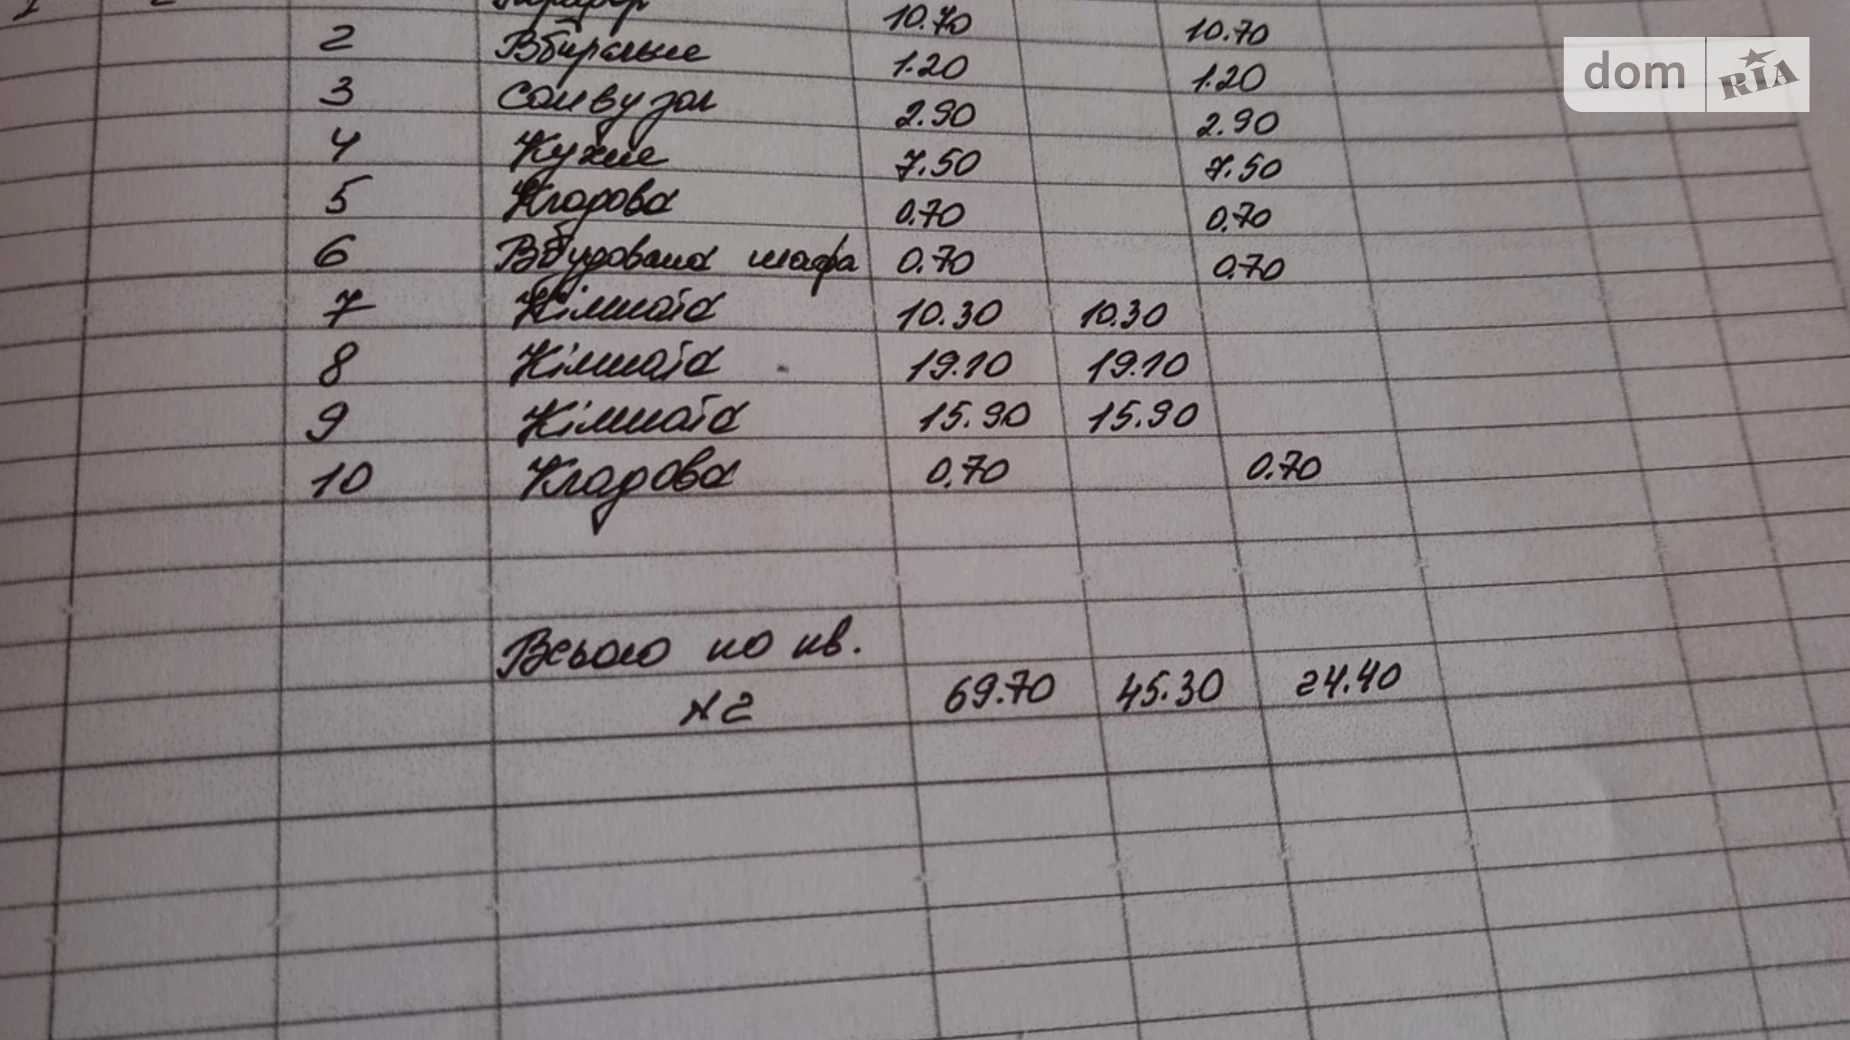 1 Коридор 10.70 10.70
2 Вбиральня 1.20 1.20
3 Санвузол 2.90 2.90
4 Кухня 7.50 7.50
5 Кладова 0.70 0.70
6 Вбудована шафа 0.70 0.70
7 Кімната 10.30 10.30
8 Кімната 19.10 19.10
9 Кімната 15.90 15.90
10 Кладова 0.70 0.70
Всього по кв.
№2 69.70 45.30 24.40
dom RIA